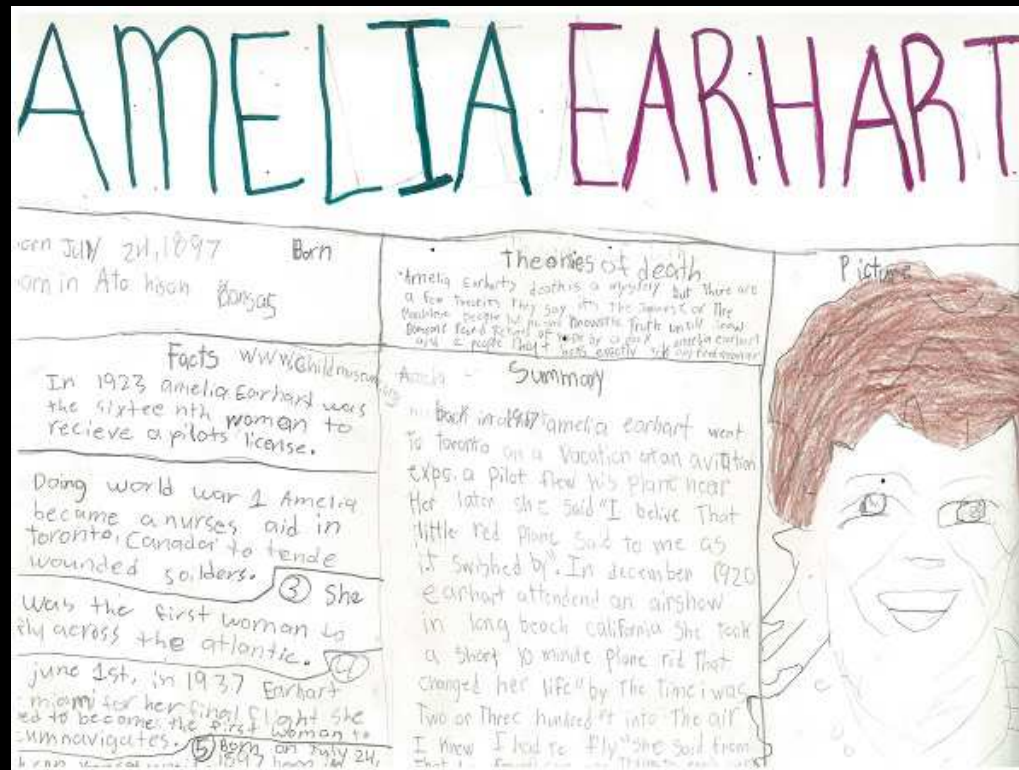 AMELIA EARHART
orn July 24, 1897 Born
orn in Atchison Kansas
Facts www.Childmuseum
In 1923 amelia Earhart was
the sixteenth woman to
recieve a pilots license.
Doing world war 1 Amelia
became a nurses aid in
toronto, Canada to tende
wounded solders.
③ She
was the first woman to
fly across the atlantic. ④
june 1st, in 1937 Earhart
miami for her final flight she
ed to become the first woman to
cumnavigates. ⑤ Born on July 24,
1897
Theories of death
Amelia Earharts death is a mystery but there are
a few They say its The or The
people Truth untill
amelia earhart
and a exactly
Summary
back in amelia earhart went
To toronto on a Vacation at an aviation
expo. a pilot flew his plane near
Her later she said "I belive That
little red plane said to me as
it swished by". In december 1920
earhart attendend an airshow
in long beach california She took
a short 10 minute plane rid That
changed her life "by The Time i was
Two or Three hundred ft into The air
I knew I had to fly" she said from
Picture